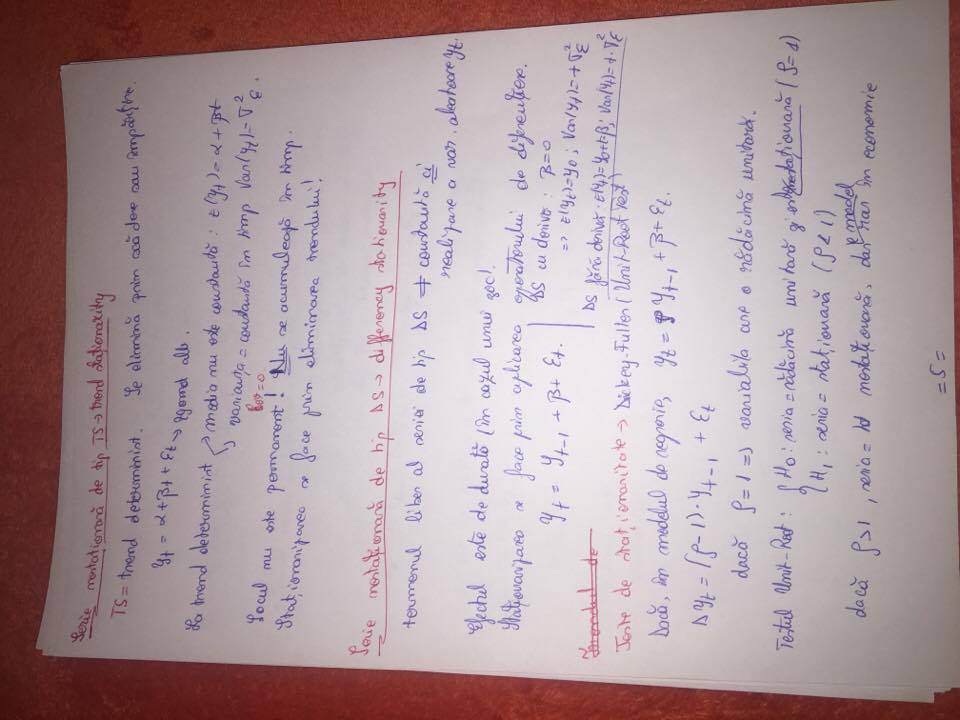 Serie nestaționară de tip TS → trend stationarity
TS = trend determinist. Se elimină prin scădere sau împărțire.
yt = α + βt + εt → zgomot alb
La trend determinist → media nu este constantă: E(yt) = α + βt
→ varianța = constantă în timp Var(yt) = σ²ε.
Cov = 0
Șocul nu este permanent! Nu se acumulează în timp.
Staționarizarea se face prin eliminarea trendului!
Serie nestaționară de tip DS → differency stationarity
termenul liber al seriei de tip DS ≠ constantă ci
realizare a var. aleatoare yt.
Efectul este de durată (în cazul unui șoc!
Staționarizarea se face prin aplicarea operatorului de diferențiere.
yt = yt-1 + β + εt.
DS cu derivă: β = 0
=> E(yt) = y0; Var(yt) = t·σ²ε
DS fără derivă: E(yt) = y0 + t·β; Var(yt) = t·σ²ε
Teste de staționaritate → Dickey-Fuller (Unit-Root Test)
Dacă, în modelul de regresie, yt = ρ yt-1 + β + εt.
Δyt = (ρ - 1)·yt-1 + εt
dacă ρ = 1 => variabila are o rădăcină unitară.
Testul Unit-Root: { H0: seria = rădăcină unitară și nestaționară (ρ = 1)
H1: seria = staționară (ρ < 1)
dacă ρ > 1, seria = nestaționară, dar rar în economie
= 5 =